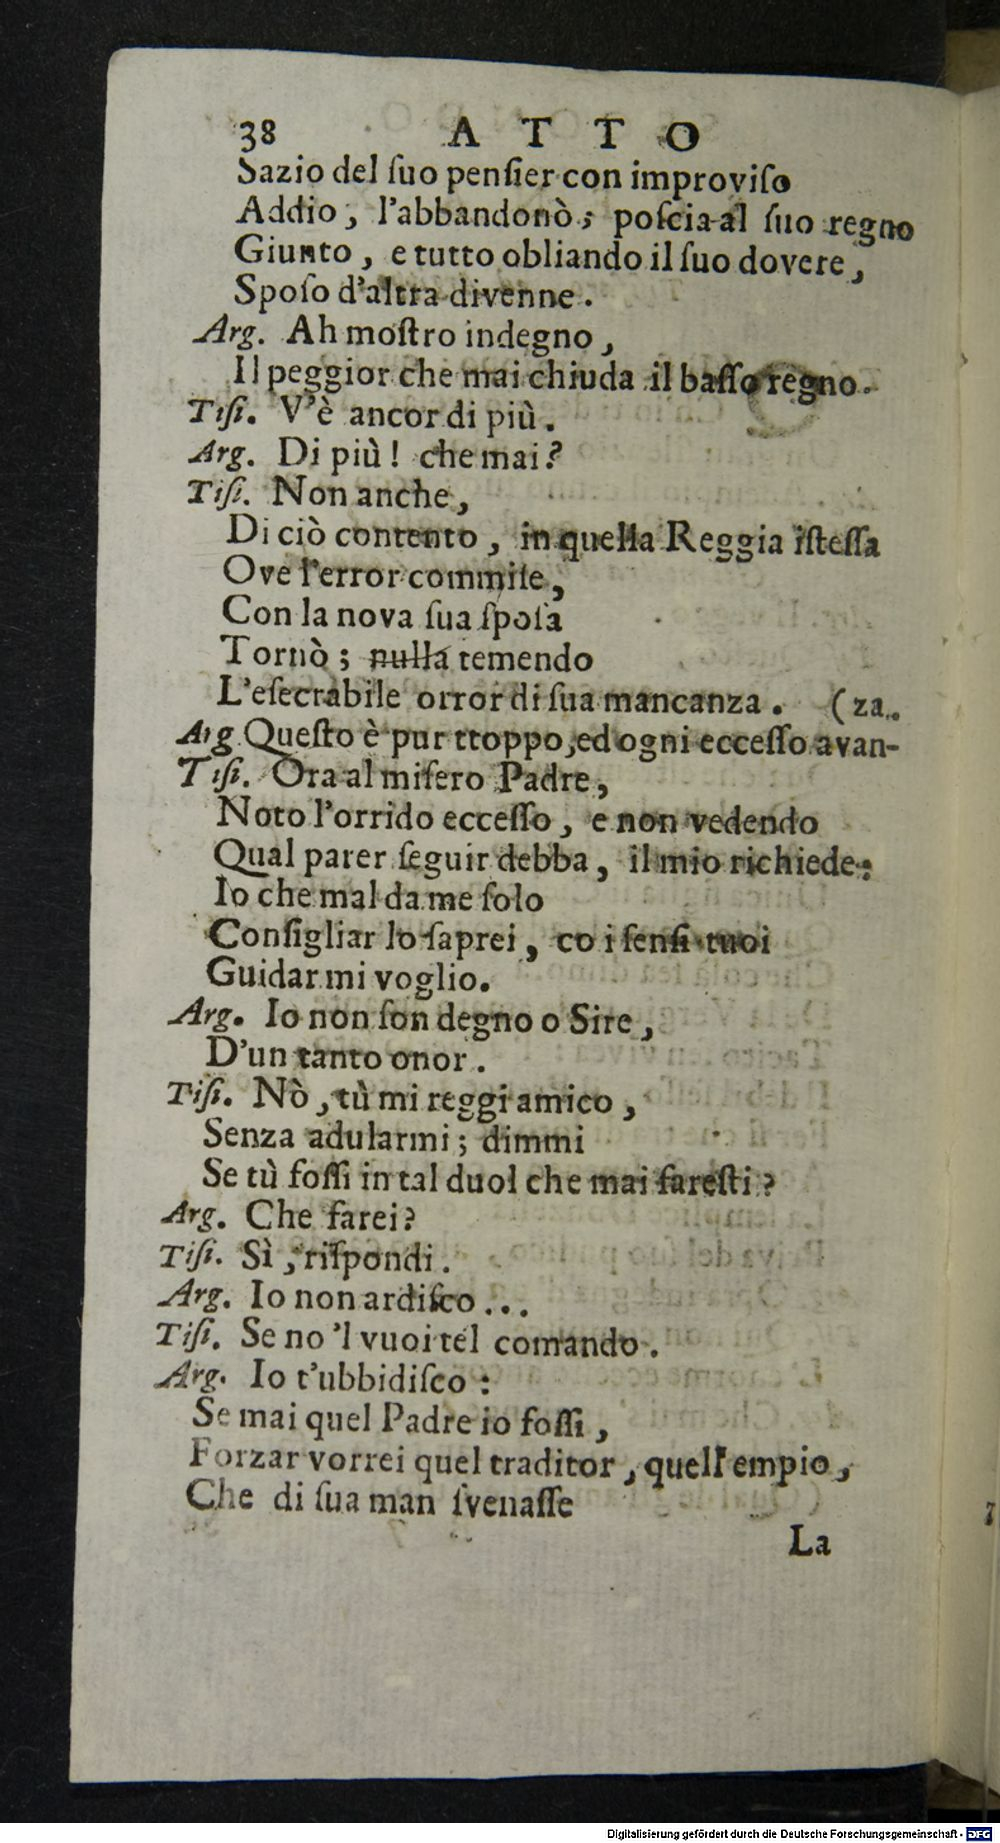 38 ATTO
Sazio del ſuo penſier con improviſo
Addio, l'abbandonò; poſcia al ſuo regno
Giunto, e tutto obliando il ſuo dovere,
Spoſo d'altra divenne.
Arg. Ah moſtro indegno,
Il peggior che mai chiuda il baſſo regno.
Tiſi. V'è ancor di più.
Arg. Di più! che mai?
Tiſi. Non anche,
Di ciò contento, in quella Reggia iſteſſa
Ove l'error commiſe,
Con la nova ſua ſpoſa
Tornò; nulla temendo
L'eſecrabile orror di ſua mancanza. (za.
Arg Queſto è pur ttoppo, ed ogni ecceſſo avan-
Tiſi. Ora al miſero Padre,
Noto l'orrido ecceſſo, e non vedendo
Qual parer ſeguir debba, il mio richiede:
Io che mal da me ſolo
Conſigliar lo ſaprei, co i ſenſi tuoi
Guidar mi voglio.
Arg. Io non ſon degno o Sire,
D'un tanto onor.
Tiſi. Nò, tù mi reggi amico,
Senza adularmi; dimmi
Se tù foſſi in tal duol che mai fareſti?
Arg. Che farei?
Tiſi. Sì, riſpondi.
Arg. Io non ardiſco...
Tiſi. Se no'l vuoi tel comando.
Arg. Io t'ubbidiſco:
Se mai quel Padre io foſſi,
Forzar vorrei quel traditor, quell'empio,
Che di ſua man ſvenaſſe
La
Digitalisierung gefördert durch die Deutsche Forschungsgemeinschaft - DFG